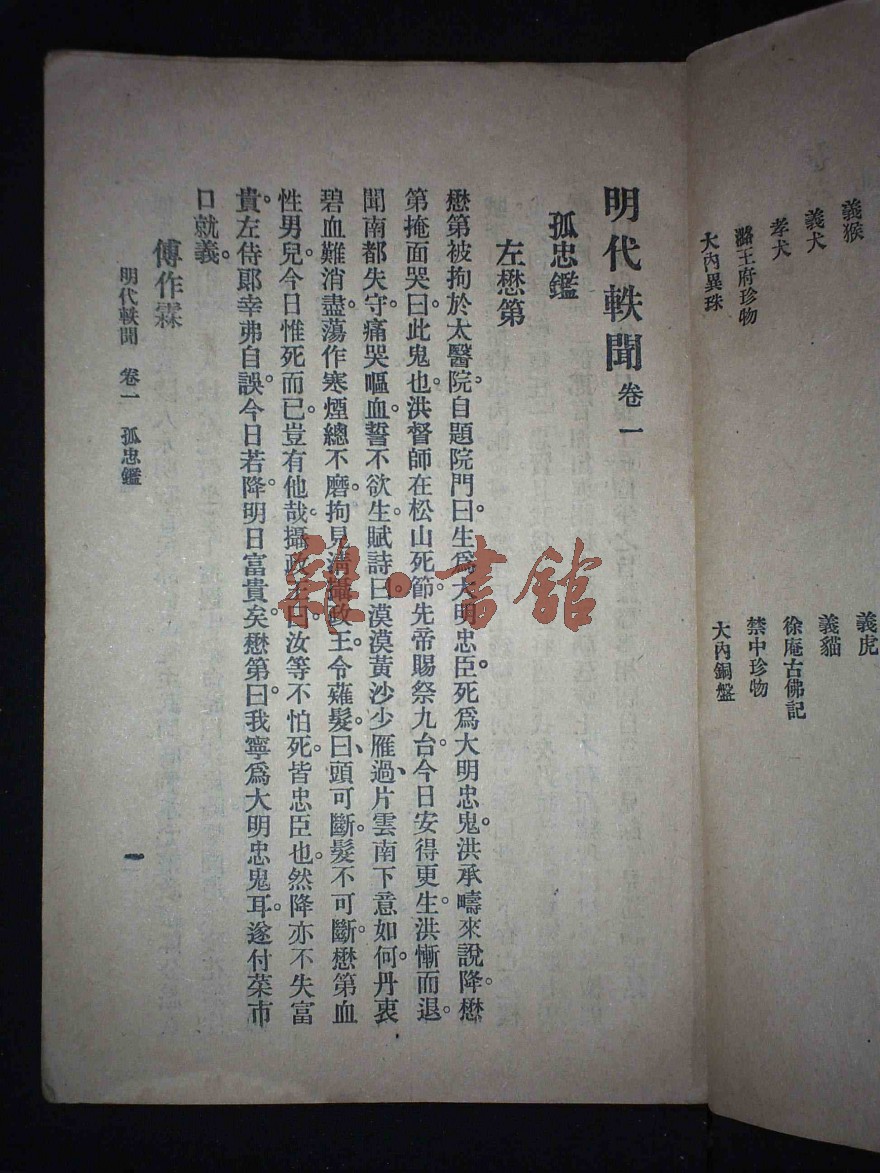 義猴
義虎
義犬
義貓
孝犬
徐庵古佛記
潞王府珍物
禁中珍物
大內異珠
大內銅盤
明代軼聞 卷一
孤忠鑑
左懋第
懋第被拘於太醫院。自題院門曰生爲大明忠臣。死爲大明忠鬼。洪承疇來說降。懋
第掩面哭曰此鬼也。洪督師在松山死節。先帝賜祭九台。今日安得更生。洪慚而退。
聞南都失守。痛哭嘔血。誓不欲生。賦詩曰漠漠黃沙少雁過、片雲南下意如何。丹衷
碧血難消盡。蕩作寒煙總不磨。拘見淸攝政王。令薙髮曰、頭可斷。髮不可斷。懋第血
性男兒。今日惟死而已。豈有他哉。攝政王曰。汝等不怕死。皆忠臣也。然降亦不失富
貴。左侍郞幸弗自誤。今日若降。明日富貴矣。懋第曰。我寧爲大明忠鬼耳。遂付菜市
口就義。
傅作霖
明代軼聞 卷一 孤忠鑑
一
雜·書館